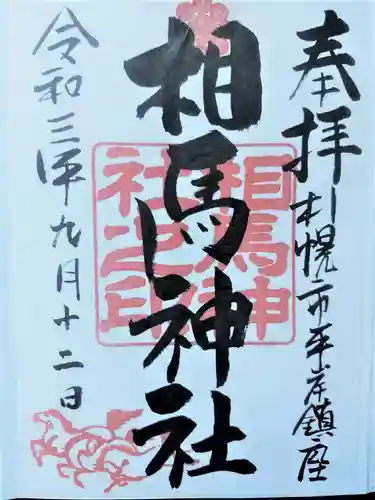 奉拝 札幌市平岸鎮座
相馬神社
相馬神社之印
令和三年九月十二日